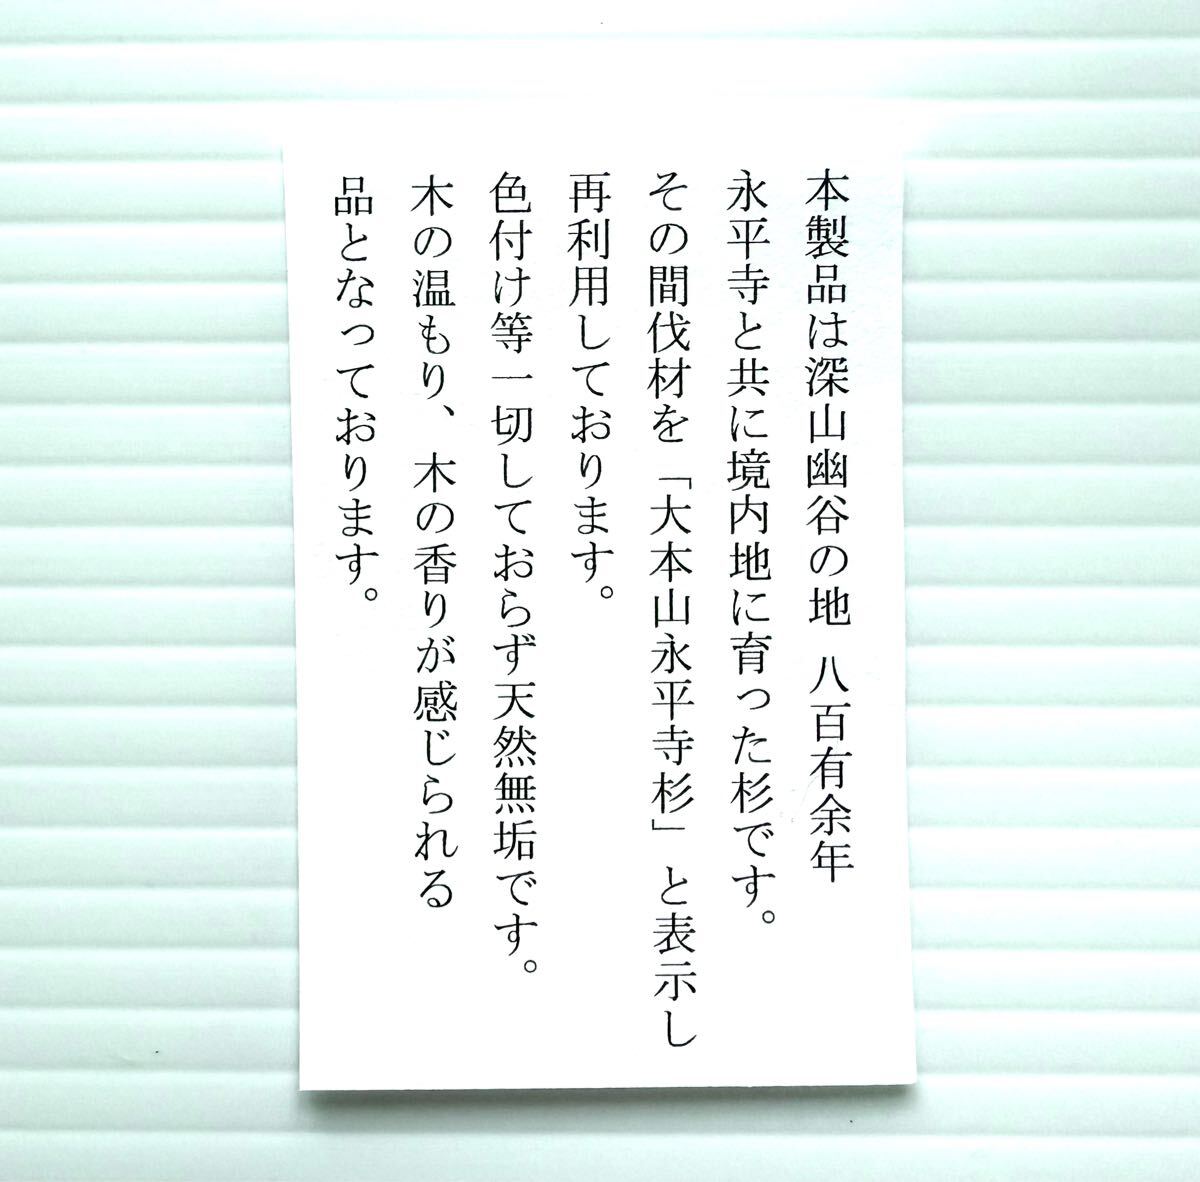 本製品は深山幽谷の地 八百有余年
永平寺と共に境内地に育った杉です。
その間伐材を「大本山永平寺杉」と表示し
再利用しております。
色付け等一切しておらず天然無垢です。
木の温もり、木の香りが感じられる
品となっております。